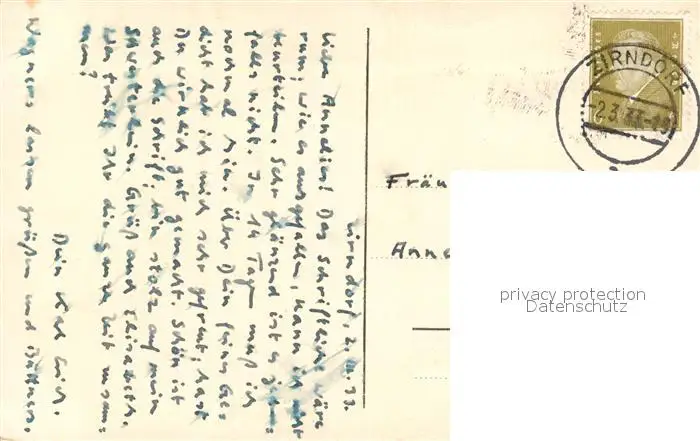 Zirndorf, 2. III. 33.
Liebe Annelies! Das Schriftliche wäre
rum; wie es ausgefallen, kann ich nicht
Sehr glänzend ist es
falls nicht. In 14 Tagen muß ich
normal sein. Über Dein feines Ges
dicht hat ich mich sehr gefreut; hast
Du wirklich gut gemacht. Schön ist
auch die Schrift; bin stolz auf mein
Schwesterlein. Grüß auch Elisabeth.
Was treibt Ihr die ganze Zeit zusam:
men?
Dein Erich.
Wagners lassen grüßen und Büttners.
ZIRNDORF
-2.3.33.-19
Fräu
Anne
privacy protection
Datenschutz